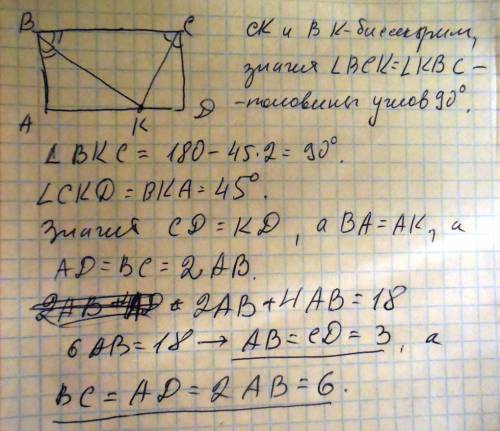 B C
A K D
CK и BK-биссектрисы,
значит ∠BCK=∠KBC -
-половины углов 90°.
∠BKC = 180 - 45·2 = 90°.
∠CKD = BKA = 45°
Значит CD = KD, а BA = AK, а
AD = BC = 2AB.
2AB + 4AB = 18
6AB = 18 → AB = CD = 3, а
BC = AD = 2AB = 6.